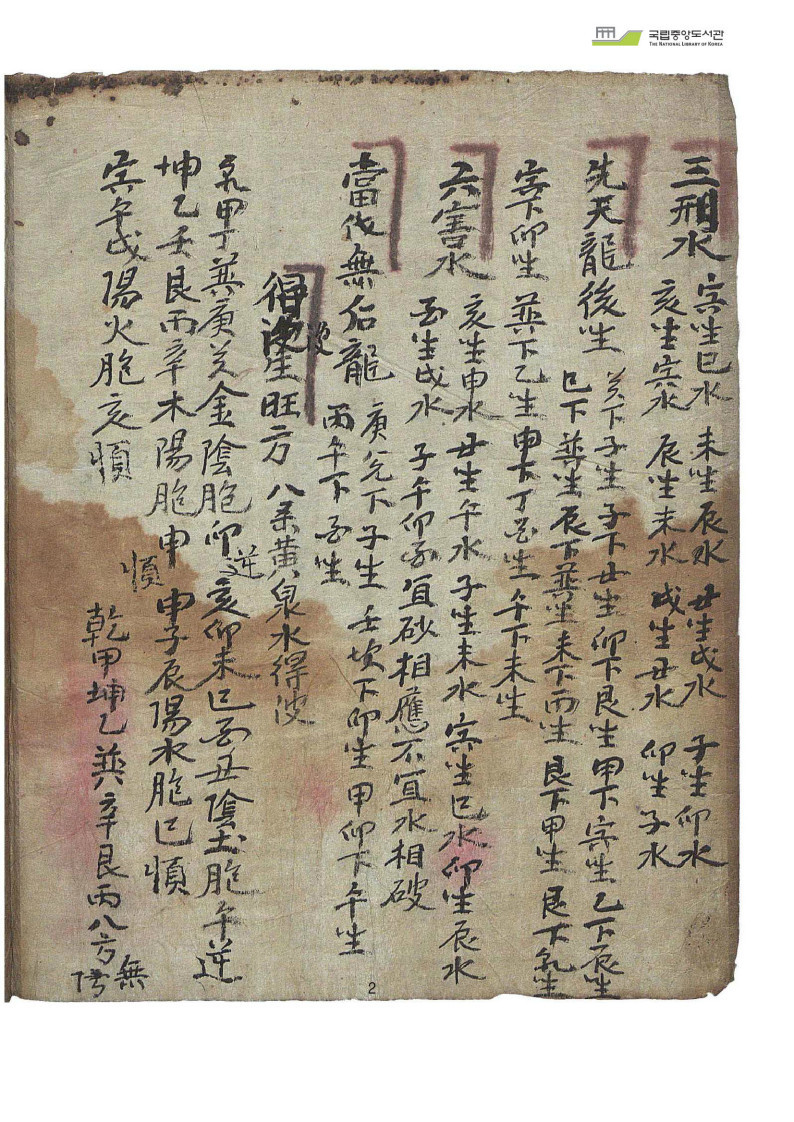 국립중앙도서관
THE NATIONAL LIBRARY OF KOREA
三刑水 寅生巳水 未生辰水 丑生戌水 子生卯水
亥生亥水 辰生未水 戌生丑水 卯生子水
先天龍後生 癸下子生 子下丑生 卯下艮生 甲下寅生 乙下辰生
巳下巽生 辰下巽生 未下丙生 艮下甲生 艮下乾生
寅下卯生 巽下乙生 申下丁生 午下未生
六害水 亥生申水 丑生午水 子生未水 寅生巳水 卯生辰水
酉生戌水 子午卯酉宜砂相應不宜水相破
當代無后龍 庚兌下子生 壬坎下卯生 甲卯下午生
丙午下酉生
得破生旺方 八柔黃泉水得破
乾甲丁巽庚癸金陰胞卯逆 亥卯未巳酉丑陰土胞午逆
坤乙壬艮丙辛木陽胞申順 申子辰陽水胞巳順
寅午戌陽火胞亥順 乾甲坤乙巽辛艮丙八方無
2